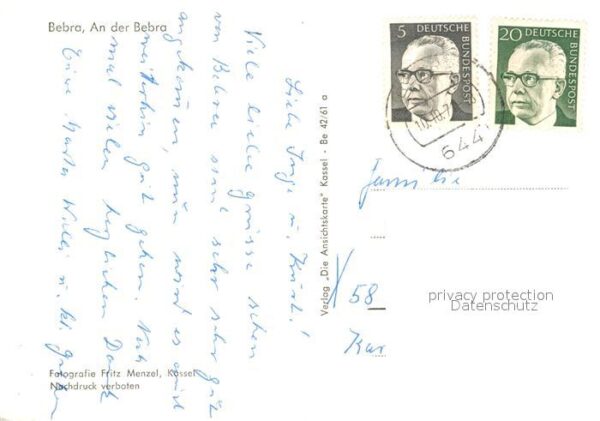 Bebra, An der Bebra
Liebe Inge u. Kurt!
Viele liebe Grüsse
von Bebra sind sehr gut
angekommen, nun wird es euch
weiterhin gut gehen. Noch
mal vielen herzlichen Dank
Eure Martha Willi u. kl.
Fotografie Fritz Menzel, Kassel
Nachdruck verboten
Verlag „Die Ansichtskarte" Kassel - Be 42/61 a
5 DEUTSCHE BUNDESPOST
20 DEUTSCHE BUNDESPOST
10.10.7
644
Familie
58
Kar
privacy protection
Datenschutz